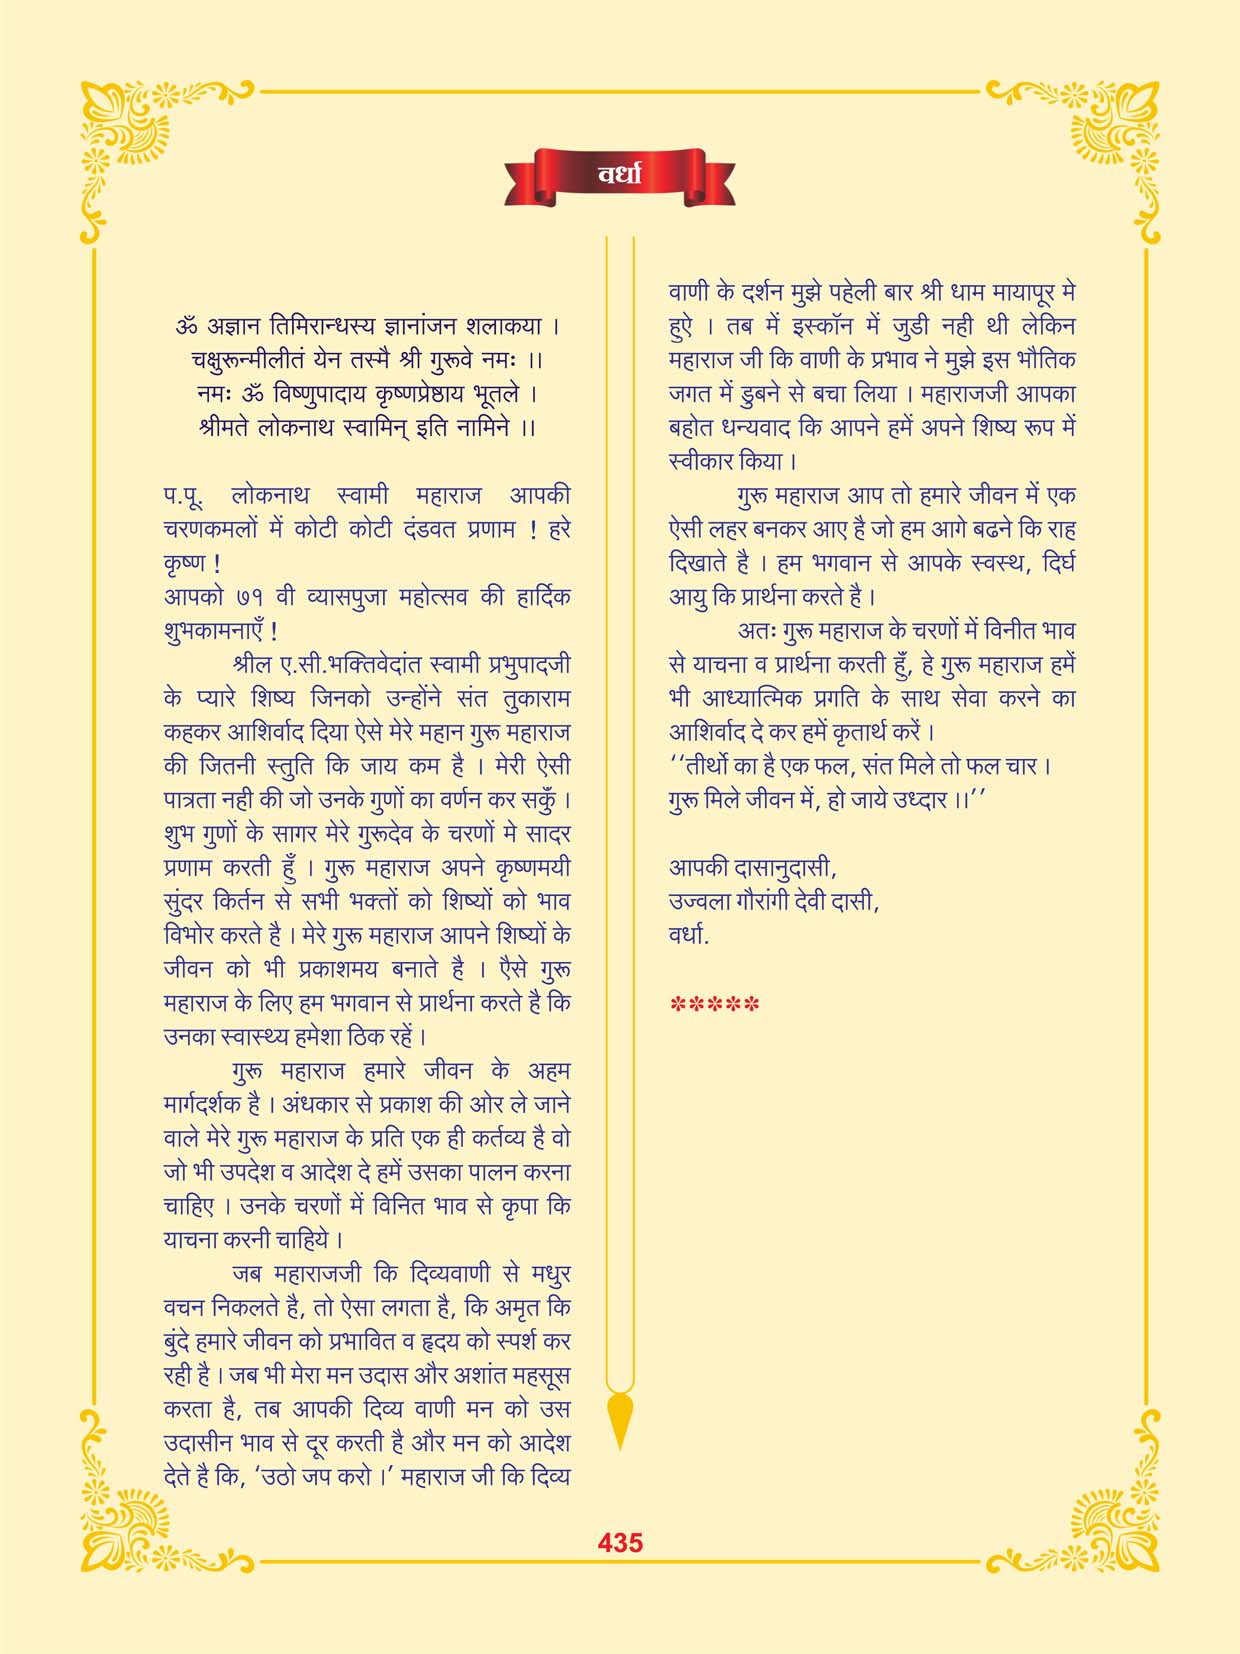 वर्धा
ॐ अज्ञान तिमिरान्धस्य ज्ञानांजन शलाकया ।
चक्षुरून्मीलीतं येन तस्मै श्री गुरूवे नमः ।।
नमः ॐ विष्णुपादाय कृष्णप्रेष्ठाय भूतले ।
श्रीमते लोकनाथ स्वामिन् इति नामिने ।।
प.पू. लोकनाथ स्वामी महाराज आपकी
चरणकमलों में कोटी कोटी दंडवत प्रणाम ! हरे
कृष्ण !
आपको ७१ वी व्यासपुजा महोत्सव की हार्दिक
शुभकामनाएँ !
श्रील ए.सी.भक्तिवेदांत स्वामी प्रभुपादजी
के प्यारे शिष्य जिनको उन्होंने संत तुकाराम
कहकर आशिर्वाद दिया ऐसे मेरे महान गुरू महाराज
की जितनी स्तुति कि जाय कम है । मेरी ऐसी
पात्रता नही की जो उनके गुणों का वर्णन कर सकुँ ।
शुभ गुणों के सागर मेरे गुरूदेव के चरणों मे सादर
प्रणाम करती हुँ । गुरू महाराज अपने कृष्णमयी
सुंदर किर्तन से सभी भक्तों को शिष्यों को भाव
विभोर करते है । मेरे गुरू महाराज आपने शिष्यों के
जीवन को भी प्रकाशमय बनाते है । एैसे गुरू
महाराज के लिए हम भगवान से प्रार्थना करते है कि
उनका स्वास्थ्य हमेशा ठिक रहें ।
गुरू महाराज हमारे जीवन के अहम
मार्गदर्शक है । अंधकार से प्रकाश की ओर ले जाने
वाले मेरे गुरू महाराज के प्रति एक ही कर्तव्य है वो
जो भी उपदेश व आदेश दे हमें उसका पालन करना
चाहिए । उनके चरणों में विनित भाव से कृपा कि
याचना करनी चाहिये ।
जब महाराजजी कि दिव्यवाणी से मधुर
वचन निकलते है, तो ऐसा लगता है, कि अमृत कि
बुंदे हमारे जीवन को प्रभावित व हृदय को स्पर्श कर
रही है । जब भी मेरा मन उदास और अशांत महसूस
करता है, तब आपकी दिव्य वाणी मन को उस
उदासीन भाव से दूर करती है और मन को आदेश
देते है कि, ‘उठो जप करो ।’ महाराज जी कि दिव्य
वाणी के दर्शन मुझे पहेली बार श्री धाम मायापूर मे
हुऐ । तब में इस्कॉन में जुडी नही थी लेकिन
महाराज जी कि वाणी के प्रभाव ने मुझे इस भौतिक
जगत में डुबने से बचा लिया । महाराजजी आपका
बहोत धन्यवाद कि आपने हमें अपने शिष्य रूप में
स्वीकार किया ।
गुरू महाराज आप तो हमारे जीवन में एक
ऐसी लहर बनकर आए है जो हम आगे बढने कि राह
दिखाते है । हम भगवान से आपके स्वस्थ, दिर्घ
आयु कि प्रार्थना करते है ।
अतः गुरू महाराज के चरणों में विनीत भाव
से याचना व प्रार्थना करती हुँ, हे गुरू महाराज हमें
भी आध्यात्मिक प्रगति के साथ सेवा करने का
आशिर्वाद दे कर हमें कृतार्थ करें ।
‘‘तीर्थो का है एक फल, संत मिले तो फल चार ।
गुरू मिले जीवन में, हो जाये उध्दार ।।’’
आपकी दासानुदासी,
उज्वला गौरांगी देवी दासी,
वर्धा.
*****
435